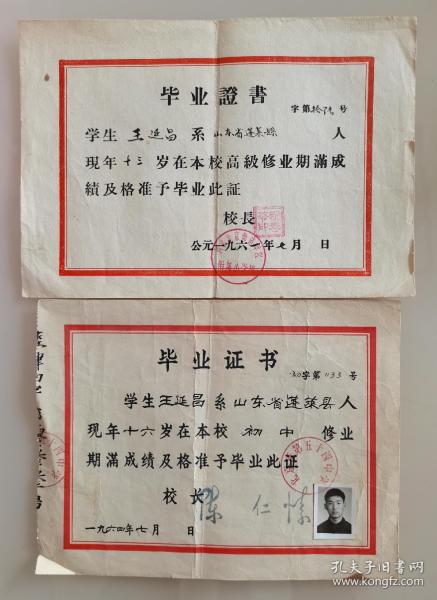 毕业證書
字第拾陆号
学生王延昌系山东省蓬莱縣人
現年十三岁在本校高級修业期滿成
績及格准予毕业此証
校長
公元一九六一年七月 日
毕业证书
初字第1133号
学生王延昌系山东省蓬莱县人
現年十六岁在本校初中修业
期滿成績及格准予毕业此証
第五十四中学
校长
陈仁愫
一九六四年七月 日
孔夫子旧书网
www.kongfz.com